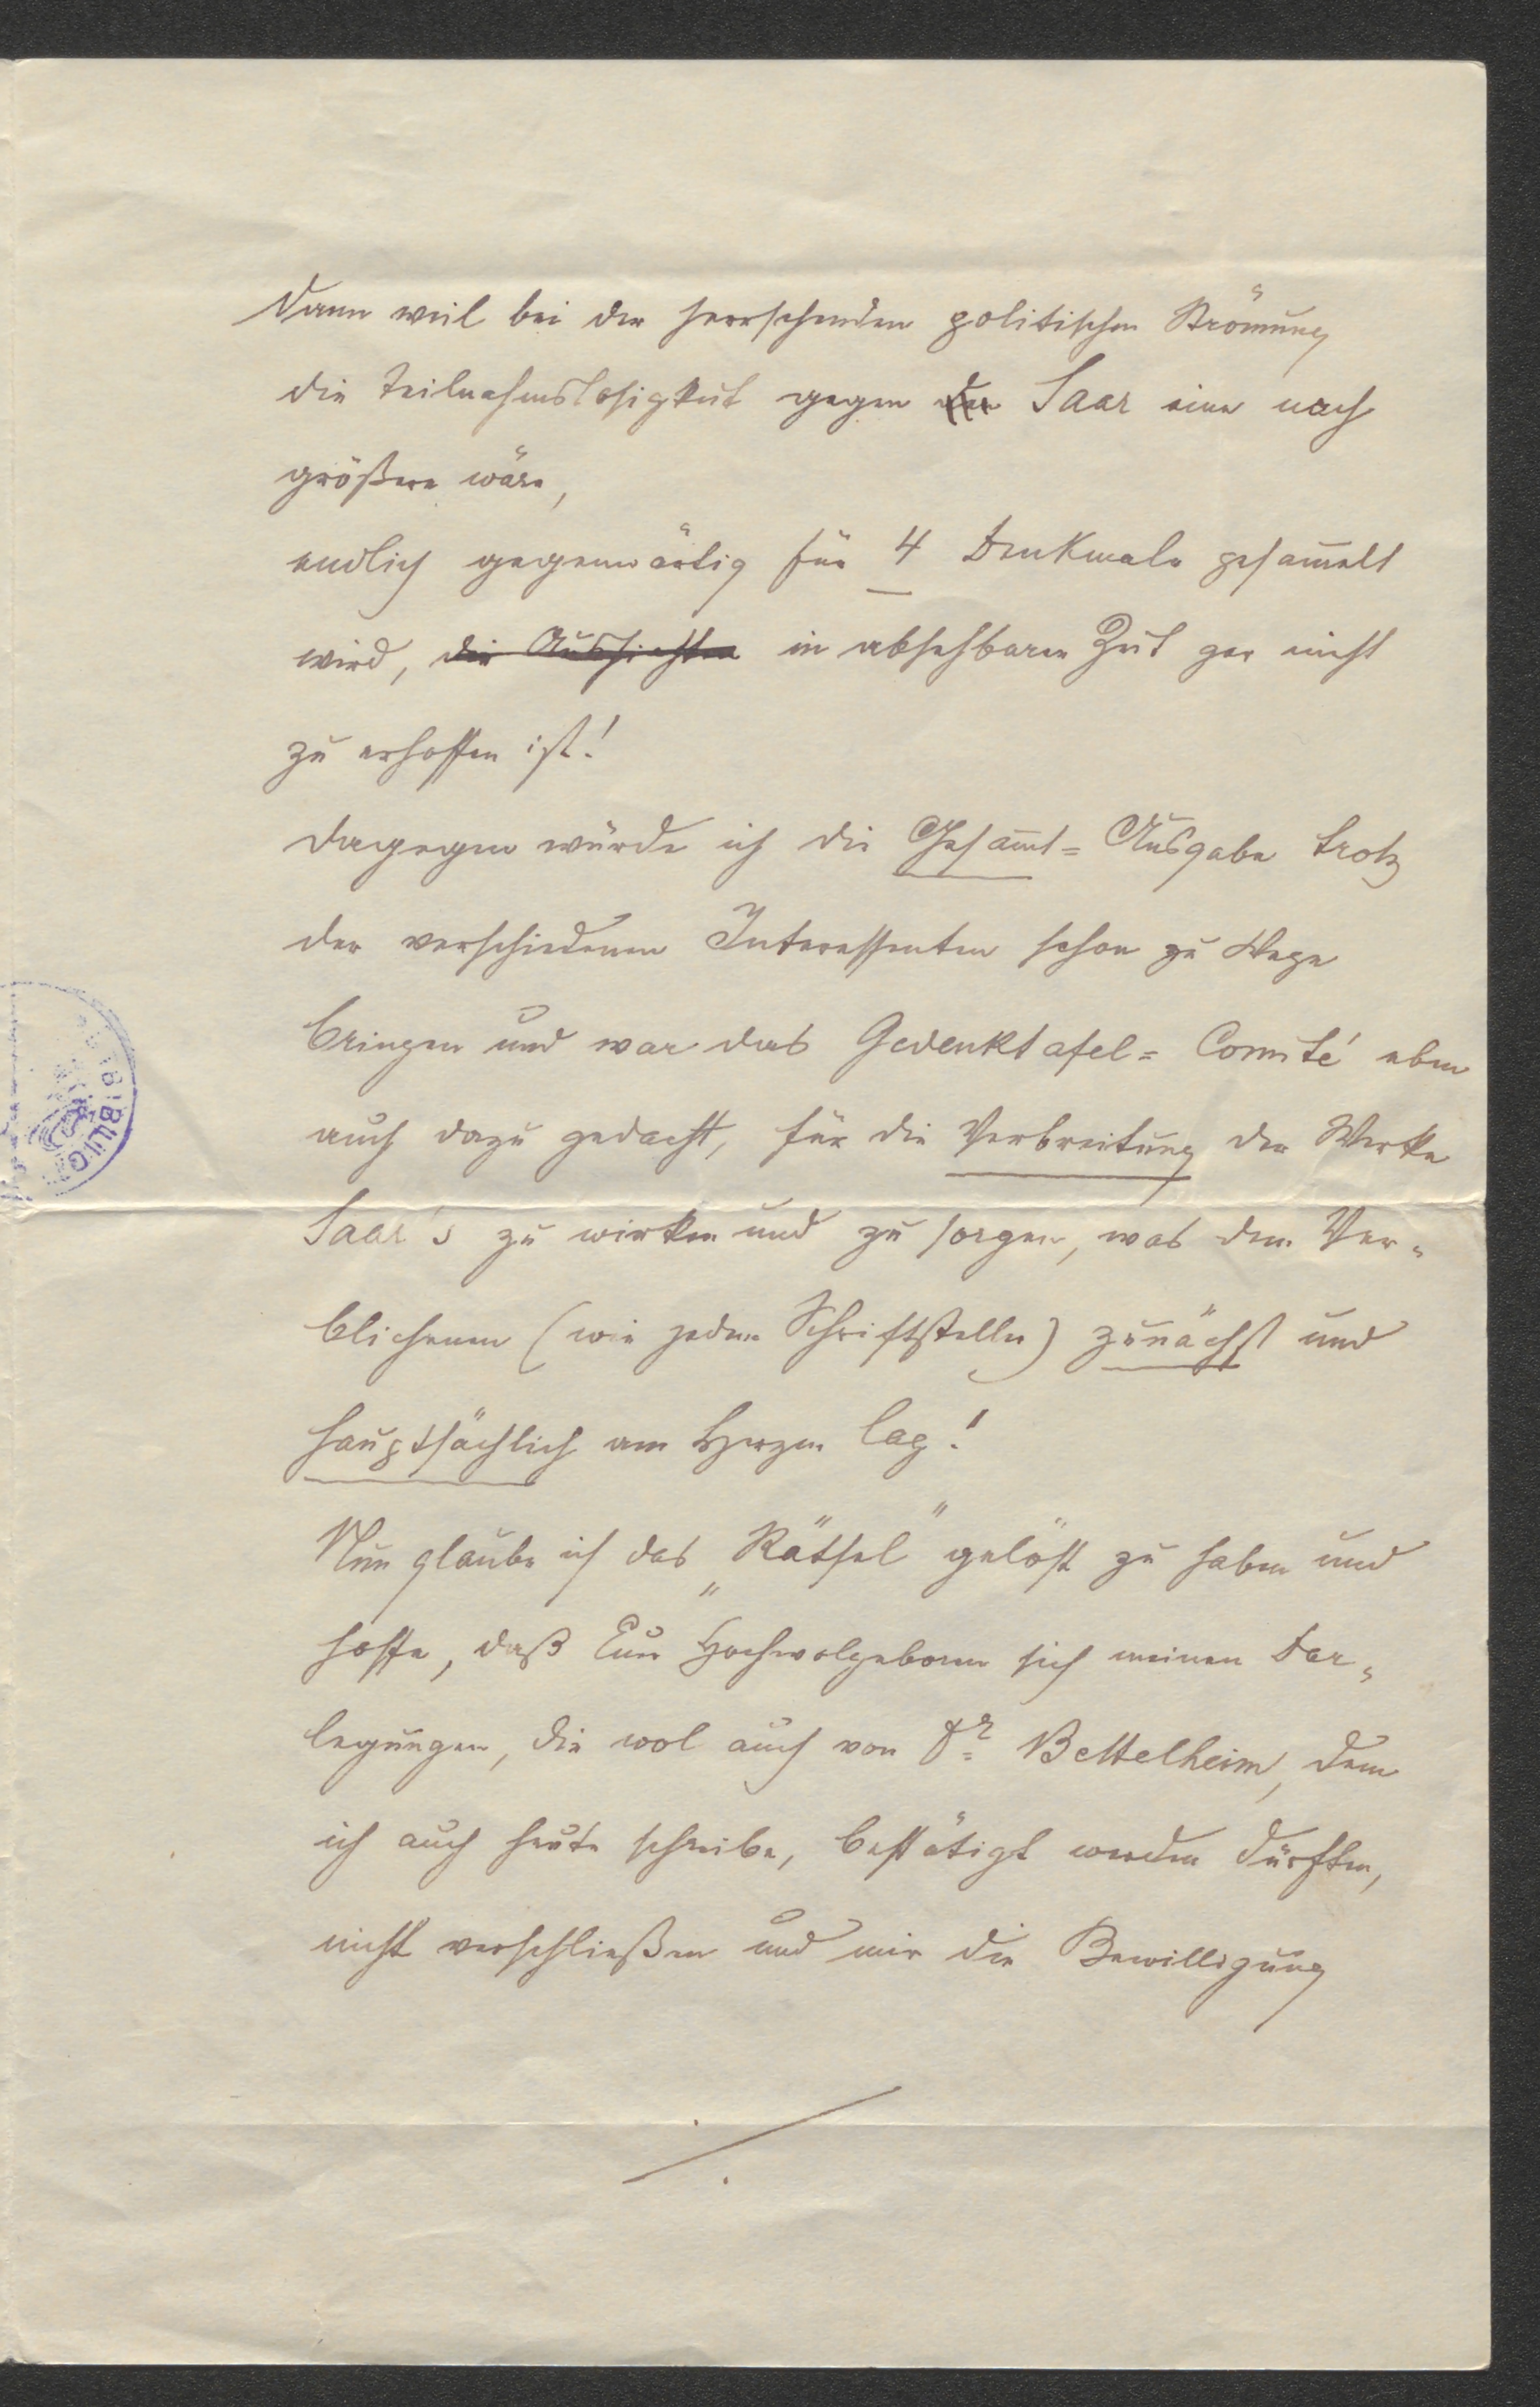 dann weil bei der herrschenden politischen Strömung
die Teilnahmslosigkeit gegen den Saar eine noch
größere wäre,
endlich gegenwärtig für 4 Denkmale gesam̅elt
wird, die Aussichten in absehbarer Zeit gar nicht
zu erhoffen ist!
dagegen würde ich die Gesam̅t= Ausgabe trotz
der verschiedenen Interessenten schon zu Wege
bringen und war das Gedenktafel= Comité eben
auch dazu gedacht, für die Verbreitung der Werke
Saar's zu wirken und zu sorgen, was dem Ver=
blichenen (wie jedem Schriftsteller) zunächst und
hauptsächlich am Herzen lag!
Nun glaube ich das „Rätsel" gelöst zu haben und
hoffe, daß Euer Hochwolgeboren sich meinen Dar=
legungen, die wol auch von Dr. Bettelheim, dem
ich auch heute schreibe, bestätigt werden dürften,
nicht verschließen und mir die Bewilligung
./.